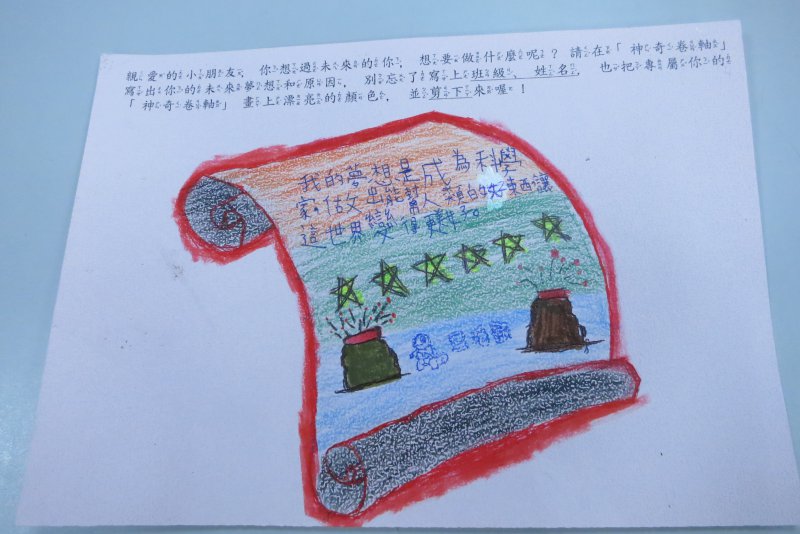 親愛的小朋友，你想過未來的你，想要做什麼呢？請在「神奇卷軸」
寫出你的未來夢想和原因，別忘了寫上班級、姓名，也把專屬你的
「神奇卷軸」畫上漂亮的顏色，並剪下來喔！
我的夢想是成為科學
家。做出能幫人類的好東西讓
這世界變得更好。